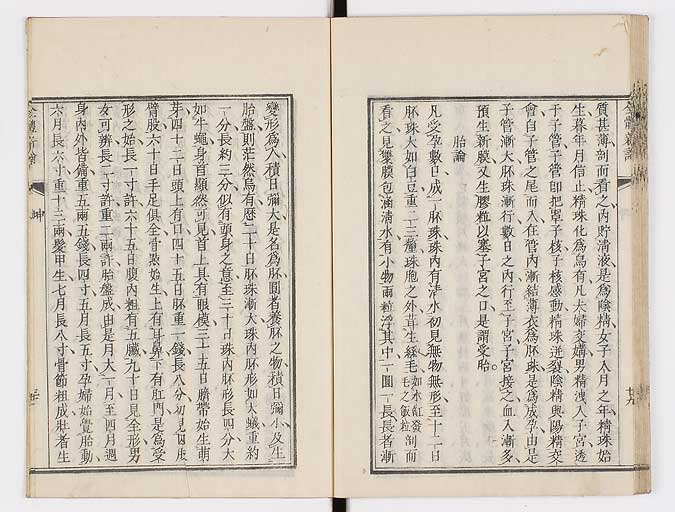 質甚薄剖而看之內貯清液是爲陰精女子入月之年精珠始
生暮年月信止精珠化爲烏有凡夫婦交媾男精洩入子宮透
于子管子管卽把罩子核子核感動精珠迸裂陰精與陽精交
會自子管之尾而入住管內漸結薄衣爲胚珠是爲成孕由是
子管漸大胚珠漸行數日之內行至子宮子宮接之血入漸多
預生新膜又生膠粒以塞子宮之口是謂受胎。
胎論
凡受孕數日成一胚珠珠內有清水初見無物無形至十二日
胚珠大如白豆重二三釐珠胞之外茸生絲毛如水缸發毛之飯粒剖而
看之見雙膜包涵清水有小物兩粒浮其中一圓一長長者漸
變形爲人積日彌大是名爲胚圓者養胚之物積日彌小及生
胎盤則茫然烏有歷二十日胚珠漸大珠內胚形如大蟻重約
一分長約三分似有頭身之意至三十日珠內胚形長四分大
如牛蠅身首顯然可見首上具有眼模三十五日臍帶始生萌
芽四十二日頭上有口四十五日胚重一錢長八分初見四肢
臂股六十日手足俱全骨點始生上有耳鼻下有肛門是爲受
形之始長一寸許六十五日腹內粗有五臟九十日見全形男
女可辨長二寸許重二兩許胎盤成由是月大一月至四月週
身內外皆備重五兩五錢長四寸五月長五寸孕婦始覺胎動
六月長六寸重十三兩髮甲生七月長八寸骨節粗成壯者生
坤